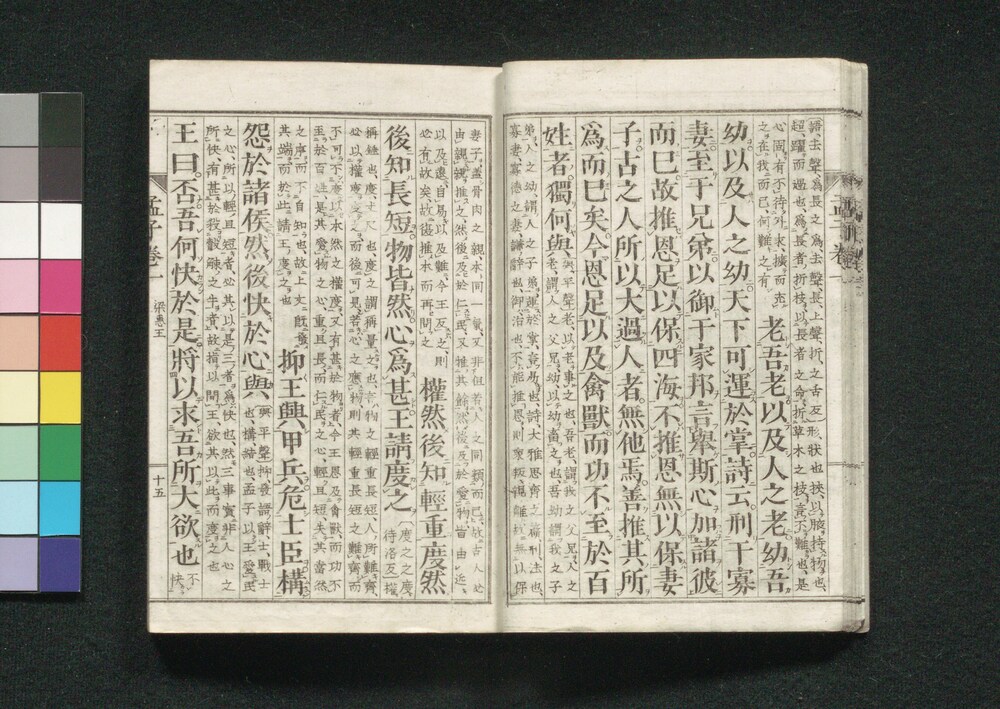 語、去聲、爲長之爲、去聲、長、上聲、折、之舌反、形、狀也、挾、以腋持物也、
超、躍而過也、爲長者折枝、以長者之命、折草木之枝、言不難也、是
心固有、不待外求、擴而充
之、在我而已、何難之有、
老吾老以及人之老幼吾
幼以及人之幼天下可運於掌詩云刑于寡
妻至于兄弟以御于家邦言舉斯心加諸彼
而已故推恩足以保四海不推恩無以保妻
子古之人所以大過人者無他焉善推其所
爲而已矣今恩足以及禽獸而功不至於百
姓者獨何與
與平聲、老、以老事之也、吾老、謂我之父兄、人之
老、謂人之父兄、幼、以幼畜之也、吾幼、謂我之子
弟、人之幼、謂人之子弟、運於掌、言易也、詩、大雅思齊之篇、刑、法也、
寡妻、寡德之妻、謙辭也、御、治也、不能推恩、則衆叛親離、故無以保
妻子、蓋骨肉之親、本同一氣、又非但若人之同類而已、故古人必
由親親推之、然後及於仁民、又推其餘、然後及於愛物、皆由近
以及遠、自易以及難、今王反之、則
必有故矣、故復推本而再問之、
權然後知輕重度然
後知長短物皆然心爲甚王請度之
度之之度、
待洛反、權、
稱錘也、度、丈尺也、度之、謂稱量之也、言物之輕重長短、人所難齊、
必以權度度之而後可見、若心之應物、則其輕重長短之難齊、而
不可不度以本然之權度、又有甚於物者、今王恩及禽獸、而功不
至於百姓、是其愛物之心重且長、而仁民之心輕且短、失其當然
之序、而不自知也、故上文既發
其端、而於此請王度之也、
抑王興甲兵危士臣構
怨於諸侯然後快於心與
與平聲、抑、發語辭、士、戰士
也、構、結也、孟子以王愛民
之心、所以輕且短者、必其以是三者爲快也、然三事實非人心之
所快、有甚於殺觳觫之牛者、故指以問王、欲其以此而度之也、
王曰否吾何快於是將以求吾所大欲也
不
快
孟子卷一
梁惠王
十五